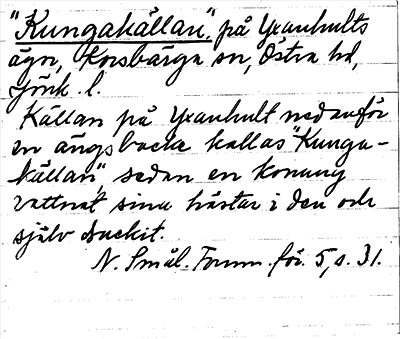 "Kungakällan", på Yxanhults
ägor, Korsberga sn, Östra hd,
Jönk. l.
Källan på Yxanhult nedanför
en ängsbacke kallas "Kunga-
källan", sedan en konung
vattnat sina hästar i den och
själv druckit.
N. Smål. Fornm. för. 5, s. 31.